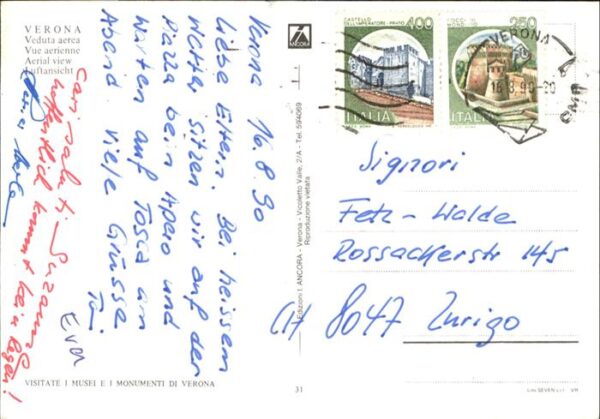 VERONA
Veduta aerea
Vue aerienne
Aerial view
Luftansicht
Verona 16.8.90
Liebe Eltern. Bei heissem
Wetter sitzen wir auf der
Piazza beim Apero und
Warten auf Tosca am
Abend. Viele Grüsse.
Eva
cari saluti Suzanne
hoffentlich kommt kein Regen!
ANCORA
Edizioni I. ANCORA - Verona - Vicoletto Valle, 2/A - Tel. 594069
Riproduzione vietata
CASTELLO
DELL'IMPERATORE - PRATO
400
ITALIA
250
ITALIA
VERONA
16.8.90-20
Signori
Fetz-Walde
Rossackerstr 145
CH 8047 Zurigo
VISITATE I MUSEI E I MONUMENTI DI VERONA
31